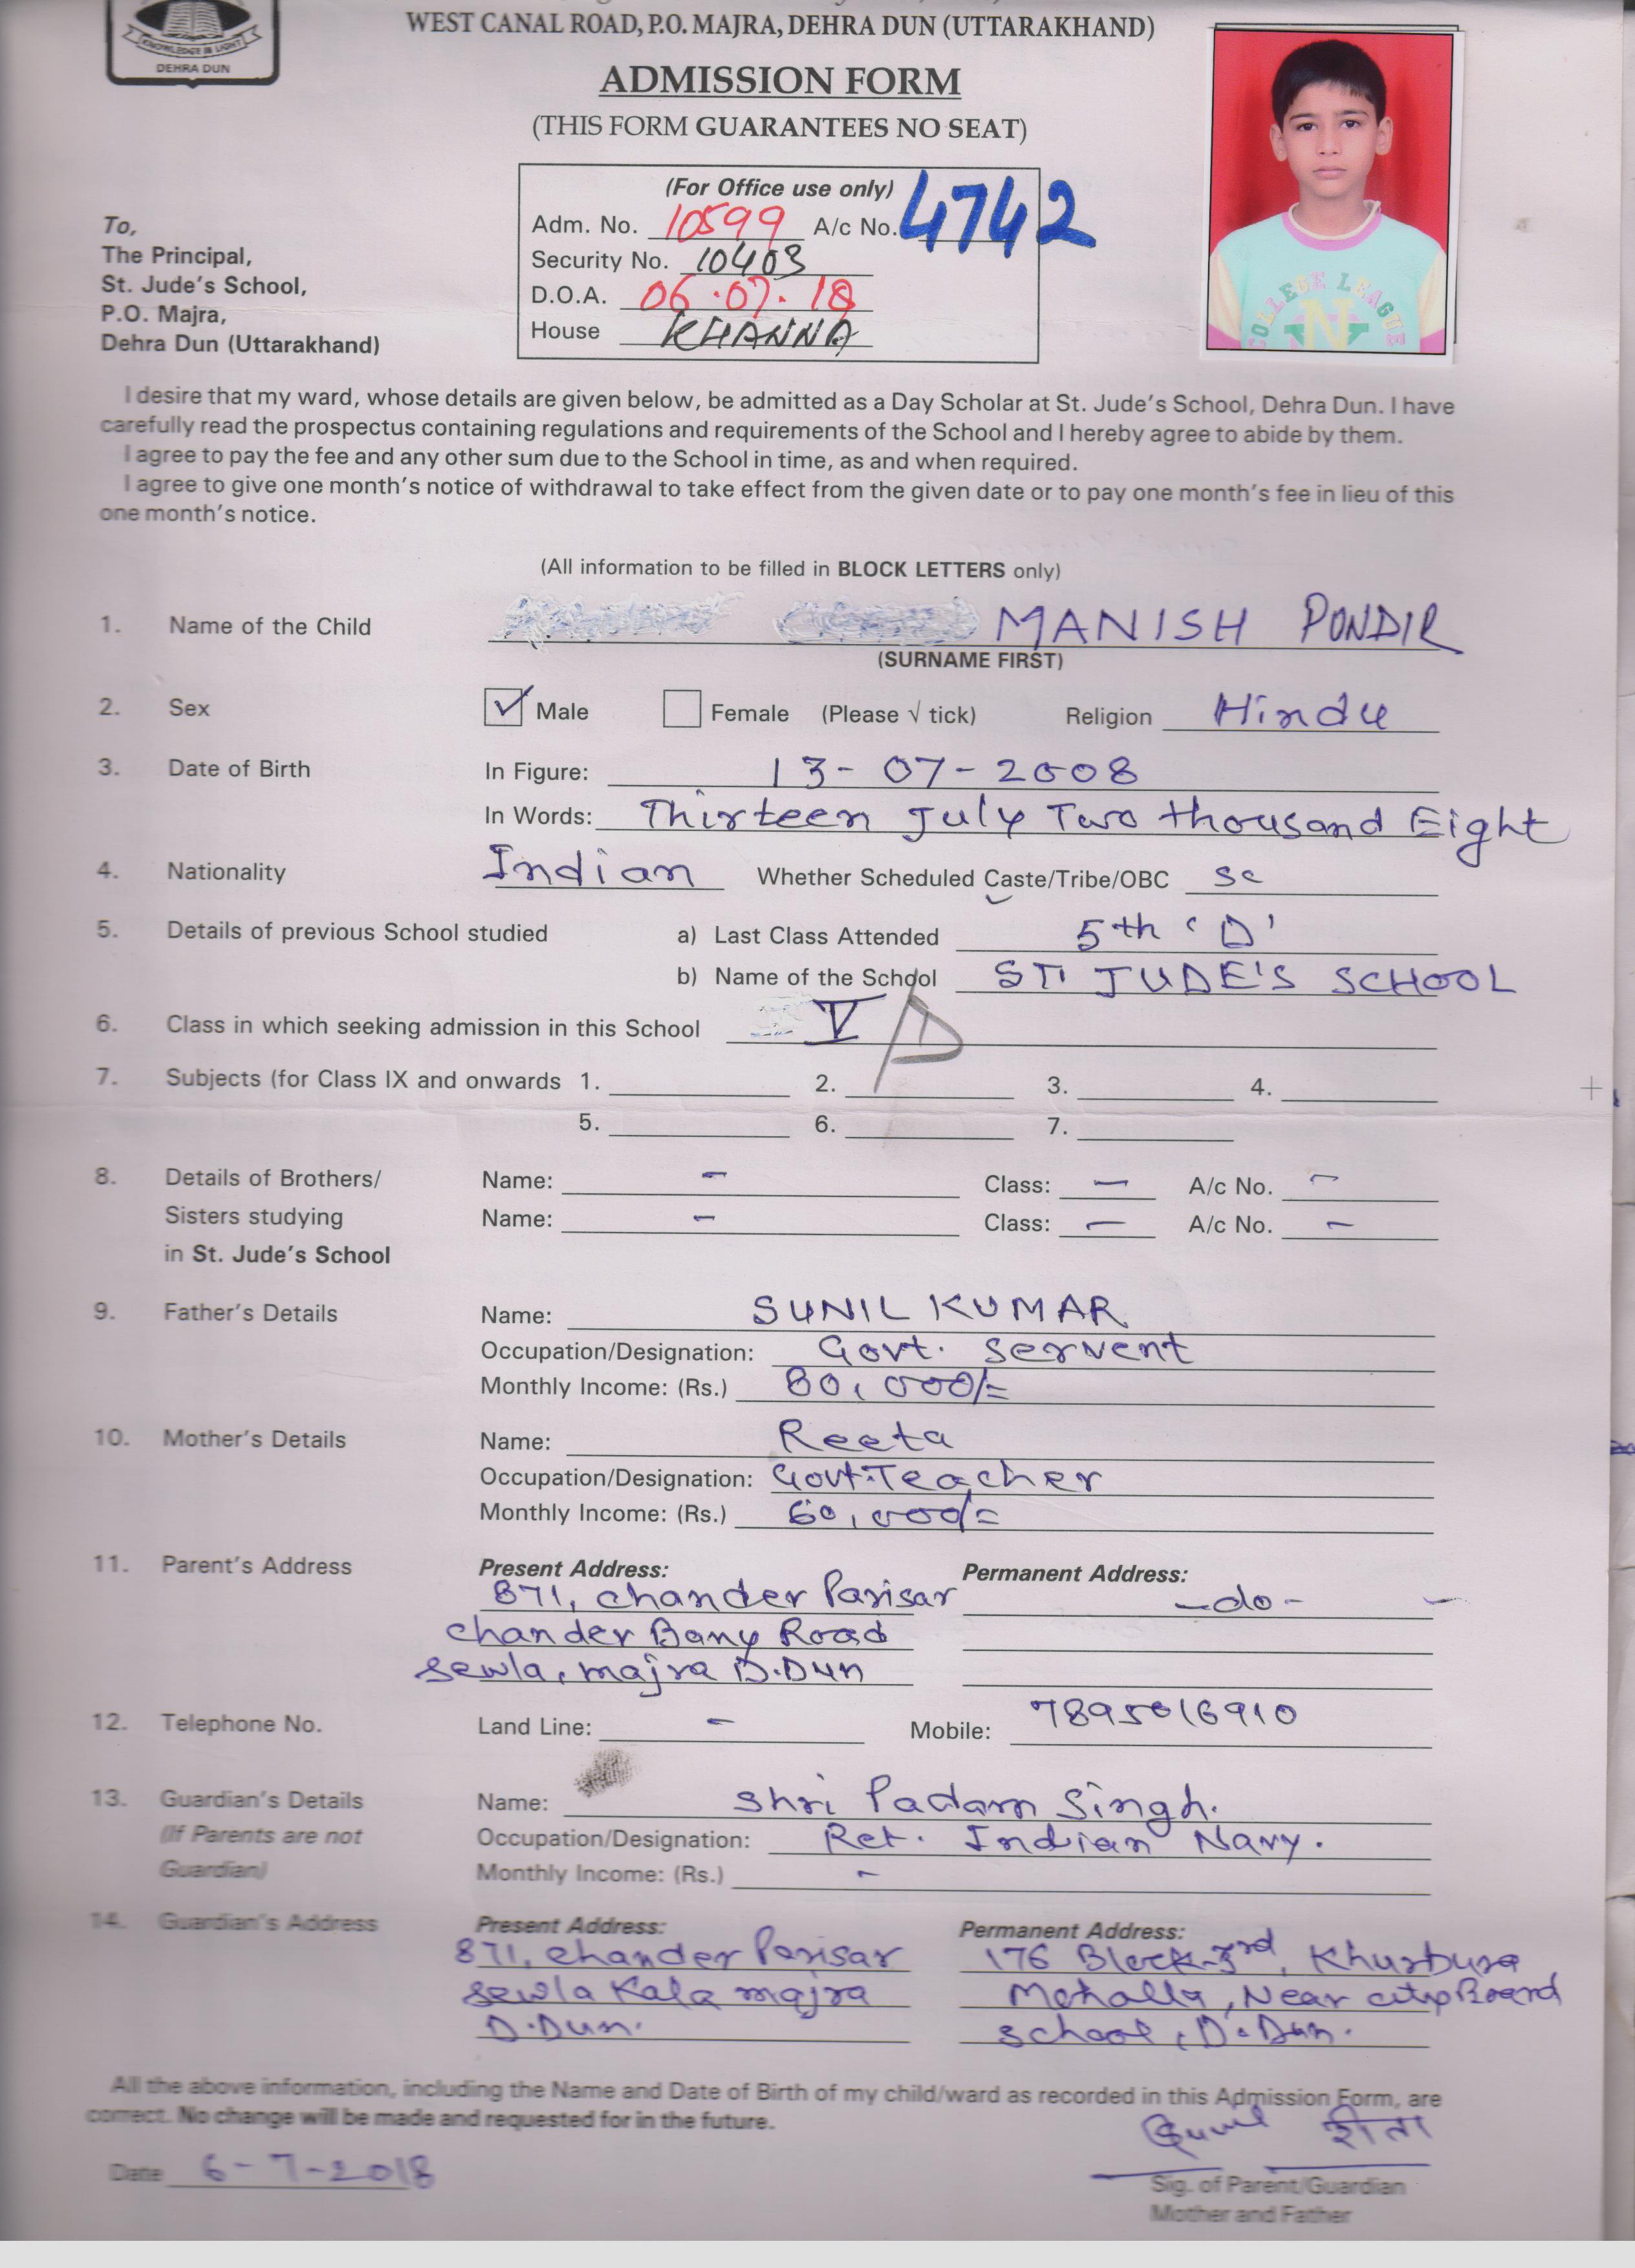 KNOWLEDGE IS LIGHT
DEHRA DUN
WEST CANAL ROAD, P.O. MAJRA, DEHRA DUN (UTTARAKHAND)
ADMISSION FORM
(THIS FORM GUARANTEES NO SEAT)
(For Office use only)
Adm. No. 10599 A/c No. 4742
Security No. 10403
D.O.A. 06.07.18
House KHANNA
To,
The Principal,
St. Jude's School,
P.O. Majra,
Dehra Dun (Uttarakhand)
COLLEGE LEAGUE
N
I desire that my ward, whose details are given below, be admitted as a Day Scholar at St. Jude's School, Dehra Dun. I have
carefully read the prospectus containing regulations and requirements of the School and I hereby agree to abide by them.
I agree to pay the fee and any other sum due to the School in time, as and when required.
I agree to give one month's notice of withdrawal to take effect from the given date or to pay one month's fee in lieu of this
one month's notice.
(All information to be filled in BLOCK LETTERS only)
1. Name of the Child MANISH PONDIR
(SURNAME FIRST)
2. Sex Male Female (Please √ tick) Religion Hindu
3. Date of Birth In Figure: 13-07-2008
In Words: Thirteen July Two thousand Eight
4. Nationality Indian Whether Scheduled Caste/Tribe/OBC SC
5. Details of previous School studied a) Last Class Attended 5th 'D'
b) Name of the School ST. JUDE'S SCHOOL
6. Class in which seeking admission in this School V D
7. Subjects (for Class IX and onwards 1. 2. 3. 4.
5. 6. 7.
8. Details of Brothers/ Name: - Class: - A/c No. -
Sisters studying Name: - Class: - A/c No. -
in St. Jude's School
9. Father's Details Name: SUNIL KUMAR
Occupation/Designation: Govt. Servent
Monthly Income: (Rs.) 80,000/=
10. Mother's Details Name: Reeta
Occupation/Designation: Govt. Teacher
Monthly Income: (Rs.) 60,000/=
11. Parent's Address Present Address: Permanent Address:
871, Chander Parisar -do-
Chander Bany Road
Sewla, majra D.Dun
12. Telephone No. Land Line: - Mobile: 7895016910
13. Guardian's Details Name: Shri Padam Singh.
(If Parents are not Occupation/Designation: Ret. Indian Navy.
Guardian) Monthly Income: (Rs.) -
14. Guardian's Address Present Address: Permanent Address:
871, Chander Parisar 176 Block-3rd, Khurbura
Sewla Kala majra Mohalla, Near city Board
D.Dun. School, D.Dun.
All the above information, including the Name and Date of Birth of my child/ward as recorded in this Admission Form, are
correct. No change will be made and requested for in the future.
Sunil रीता
Date 6-7-2018
Sig. of Parent/Guardian
Mother and Father